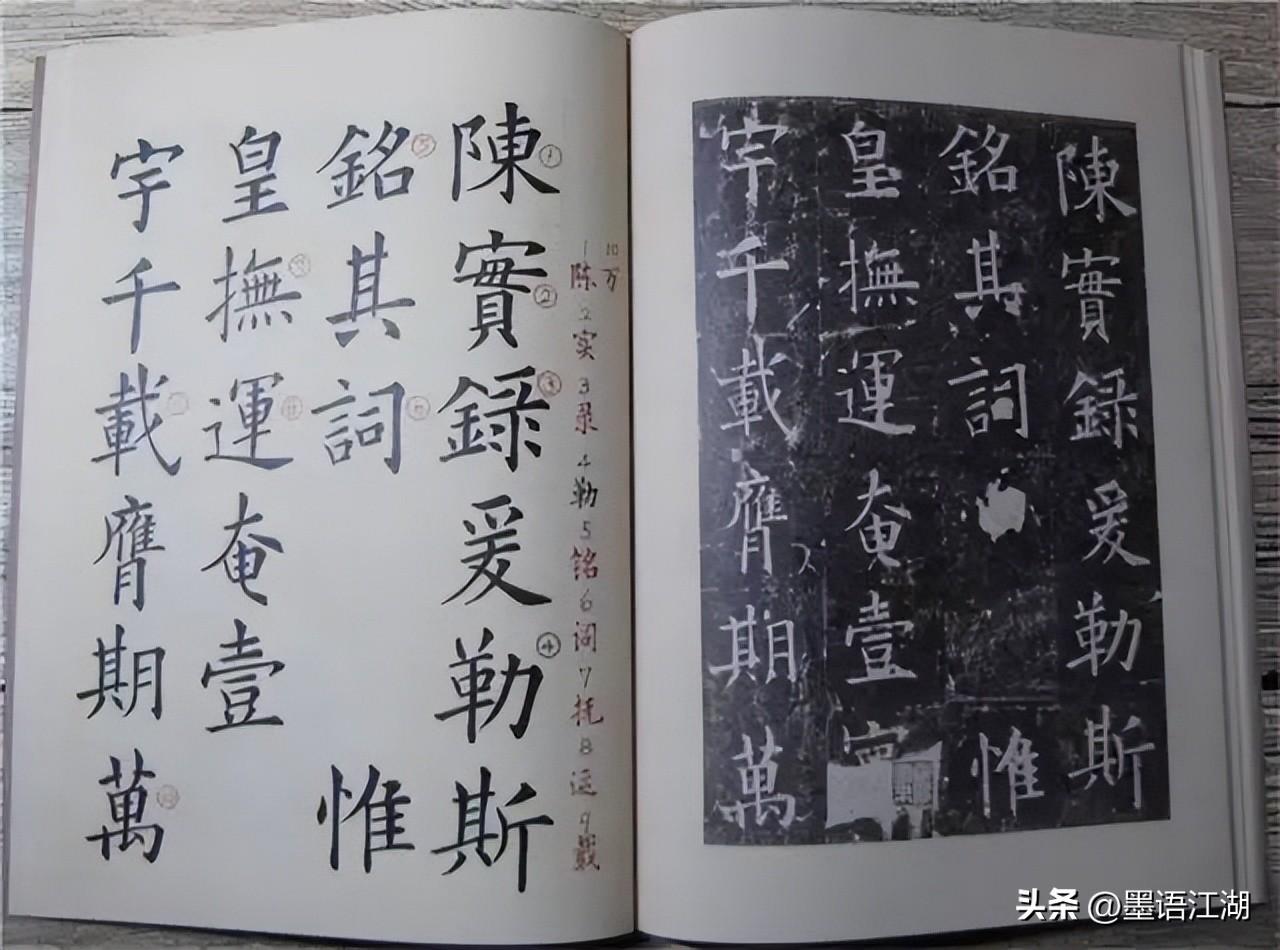 陳①實②録③爰勒④斯
銘⑤其詞惟
皇撫運奄壹
宇千載膺期萬
1陈2实3录4勒5铭6词7 8运9载
10万
陳實録爰勒斯
銘其詞惟
皇撫運奄壹
宇千載膺期萬
头条 @墨语江湖